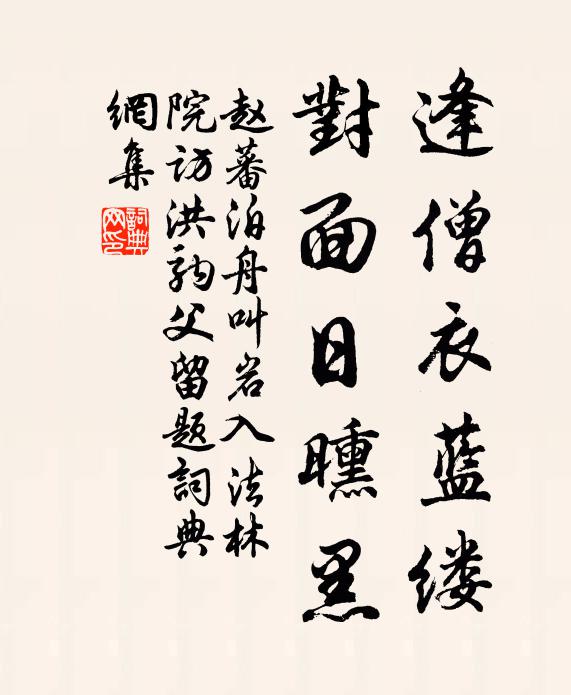 逢僧衣蓝缕
對面日曛黑
赵蕃泊舟叫岩入法林
院访洪駒父留题詞典
網集
詞典
网印